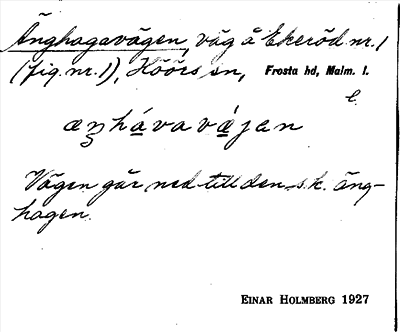 Änghagavägen, väg å Ekeröd nr. 1
(fig. nr. 1), Höörs sn, Frosta hd, Malm. l.
l.
æŋhávavǽjen
Vägen går ned till den s.k. äng-
hagen.
EINAR HOLMBERG 1927